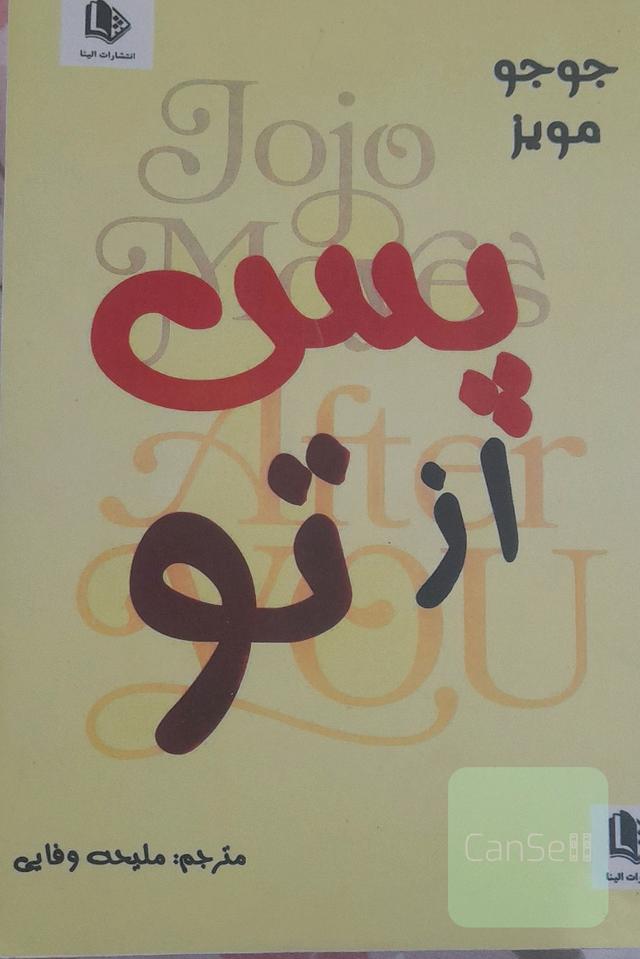 انتشارات الینا
جوجو
مویز
Jojo
Moyes
پس
After
از
تو
YOU
مترجم: ملیحه وفایی
CanSell
رات الینا